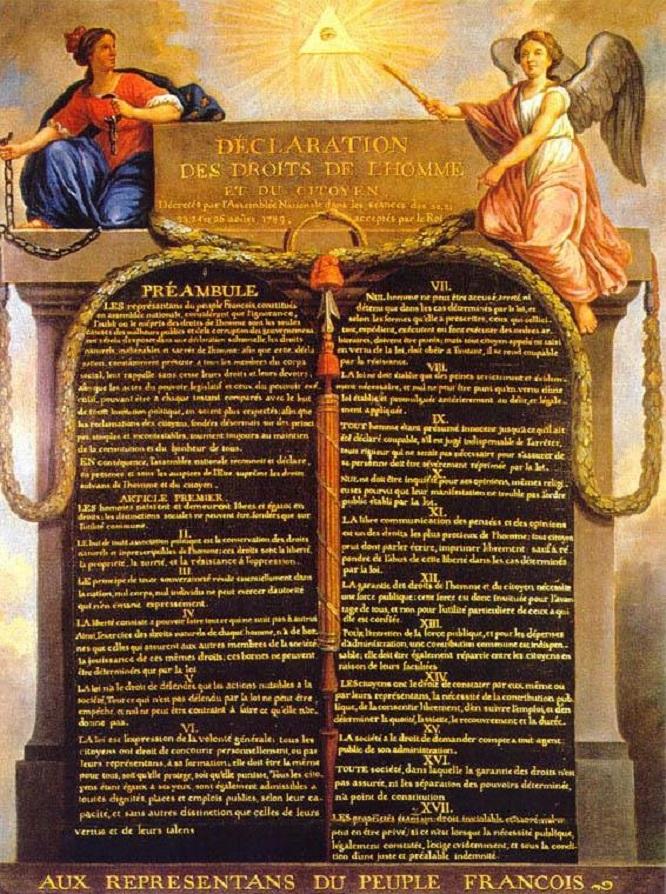 DÉCLARATION
DES DROITS DE L'HOMME
ET DU CITOYEN,
Décretés par l'Assemblée Nationale dans les séances des 20, 21
23, 24 et 26 août 1789, acceptés par le Roi
PRÉAMBULE
LES représentans du peuple François, constitués
en assemblée nationale, considérant que l'ignorance,
l'oubli ou le mépris des droits de l'homme sont les seules
causes des malheurs publics et de la corruption des gouvernemens
ont résolu d'exposer dans une déclaration solemnelle, les droits
naturels, inaliénables et sacrés de l'homme: afin que cette décla
ration, constamment présente a tous les membres du corps
social, leur rappelle sans cesse leurs droits et leurs devoirs;
afin que les actes du pouvoir législatif et ceux du pouvoir exé
cutif, pouvant être a chaque instant comparés avec le but
de toute institution politique, en soient plus respectés; afin que
les reclamations des citoyens, fondées désormais sur des princi
pes simples et incontestables, tournent toujours au maintien
de la constitution et du bonheur de tous.
EN conséquence, l'assemblée nationale reconnoit et déclare,
en présence et sous les auspices de l'Être suprême les droits
suivans de l'homme et du citoyen.
ARTICLE PREMIER.
LES hommes naissent et demeurent libres et égaux en
droits; les distinctions sociales ne peuvent être fondées que sur
l'utilité commune.
II.
LE but de toute association politique est la conservation des droits
naturels et imprescriptibles de l'homme; ces droits sont la liberté,
la propriété, la sureté, et la résistance à l'oppression.
III.
LE principe de toute souveraineté réside essentiellement dans
la nation, nul corps, nul individu ne peut exercer d'autorité
qui n'en émane expressement.
IV.
LA liberté consiste a pouvoir faire tout ce qui ne nuit pas à autrui
Ainsi, l'exercice des droits naturels de chaque homme, n'a de bor-
nes que celles qui assurent aux autres membres de la société
la jouissance de ces mêmes droits; ces bornes ne peuvent
être déterminées que par la loi
V.
LA loi n'a le droit de défendre que les actions nuisibles à la
société. Tout ce qui n'est pas défendu par la loi ne peut être
empêché, et nul ne peut être contraint à faire ce qu'elle n'or-
donne pas.
VI.
LA loi est l'expression de la volonté générale; tous les
citoyens ont droit de concourir personnellement, ou par
leurs représentans, à sa formation; elle doit être la même
pour tous, soit qu'elle protege, soit qu'elle punisse. Tous les cito
yens étant égaux à ses yeux, sont également admissibles a
toutes dignités, places et emplois publics, selon leur ca-
pacité, et sans autres distinction que celles de leurs
vertus et de leurs talens
VII.
NUL homme ne peut être accusé, arreté, ni
détenu que dans les cas déterminés par la loi, et
selon les formes qu'elle a prescrites, ceux qui sollici-
tent, expédient, exécutent ou font exécuter des ordres ar-
bitraires, doivent être punis; mais tout citoyen appelé ou saisi
en vertu de la loi, doit obéir a l'instant, il se rend coupable
par la résistance.
VIII.
LA loi ne doit établir que des peines strictement et évidem-
ment nécessaire, et nul ne peut être puni qu'en vertu d'une
loi établie et promulguée antérierement au délit, et légale-
ment appliquée.
IX.
TOUT homme étant présumé innocent jusqu'a ce qu'il ait
été déclaré coupable, s'il est jugé indispensable de l'arrêter,
toute rigueur qui ne serait pas nécessaire pour s'assurer de
sa personne doit être sévèrement réprimée par la loi.
X.
NUL ne doit être inquiété pour ses opinions, mêmes religi
euses pourvu que leur manifestation ne trouble pas l'ordre
public établi par la loi.
XI.
LA libre communication des pensées et des opinions
est un des droits les plus précieux de l'homme; tout citoyen
peut donc parler, écrire, imprimer librement: sauf à ré
pondre de l'abus de cette liberté dans les cas déterminés
par la loi.
XII.
LA garantie des droits de l'homme et du citoyen nécessite
une force publique; cette force est donc instituée pour l'avan
tage de tous, et non pour l'utilité particuliere de ceux a qui
elle est confiée.
XIII.
Pour l'entretien de la force publique, et pour les dépenses
d'administration, une contribution commune est indispen-
sable; elle doit être également répartie entre les citoyens en
raison de leurs facultées.
XIV.
LES citoyens ont le droit de constater par eux même ou
par leurs représentans, la nécessité de la contribution pub-
lique, de la consentir librement, d'en suivre l'emploi, et d'en
déterminer la quotité, l'assiette, le recouvrement et la durée.
XV.
LA société a le droit de demander compte a tout agent
public de son administration.
XVI.
TOUTE société, dans laquelle la garantie des droits n'est
pas assurée, ni les séparation des pouvoirs déterminée,
n'a point de constitution.
XVII.
LES propriétés étant un droit inviolable et sacré, nul ne
peut en être privé, si ce n'est lorsque la nécessité publique,
légalement constatée, l'exige evidemment, et sous la condi-
tion d'une juste et préalable indemnité.
AUX REPRESENTANS DU PEUPLE FRANCOIS